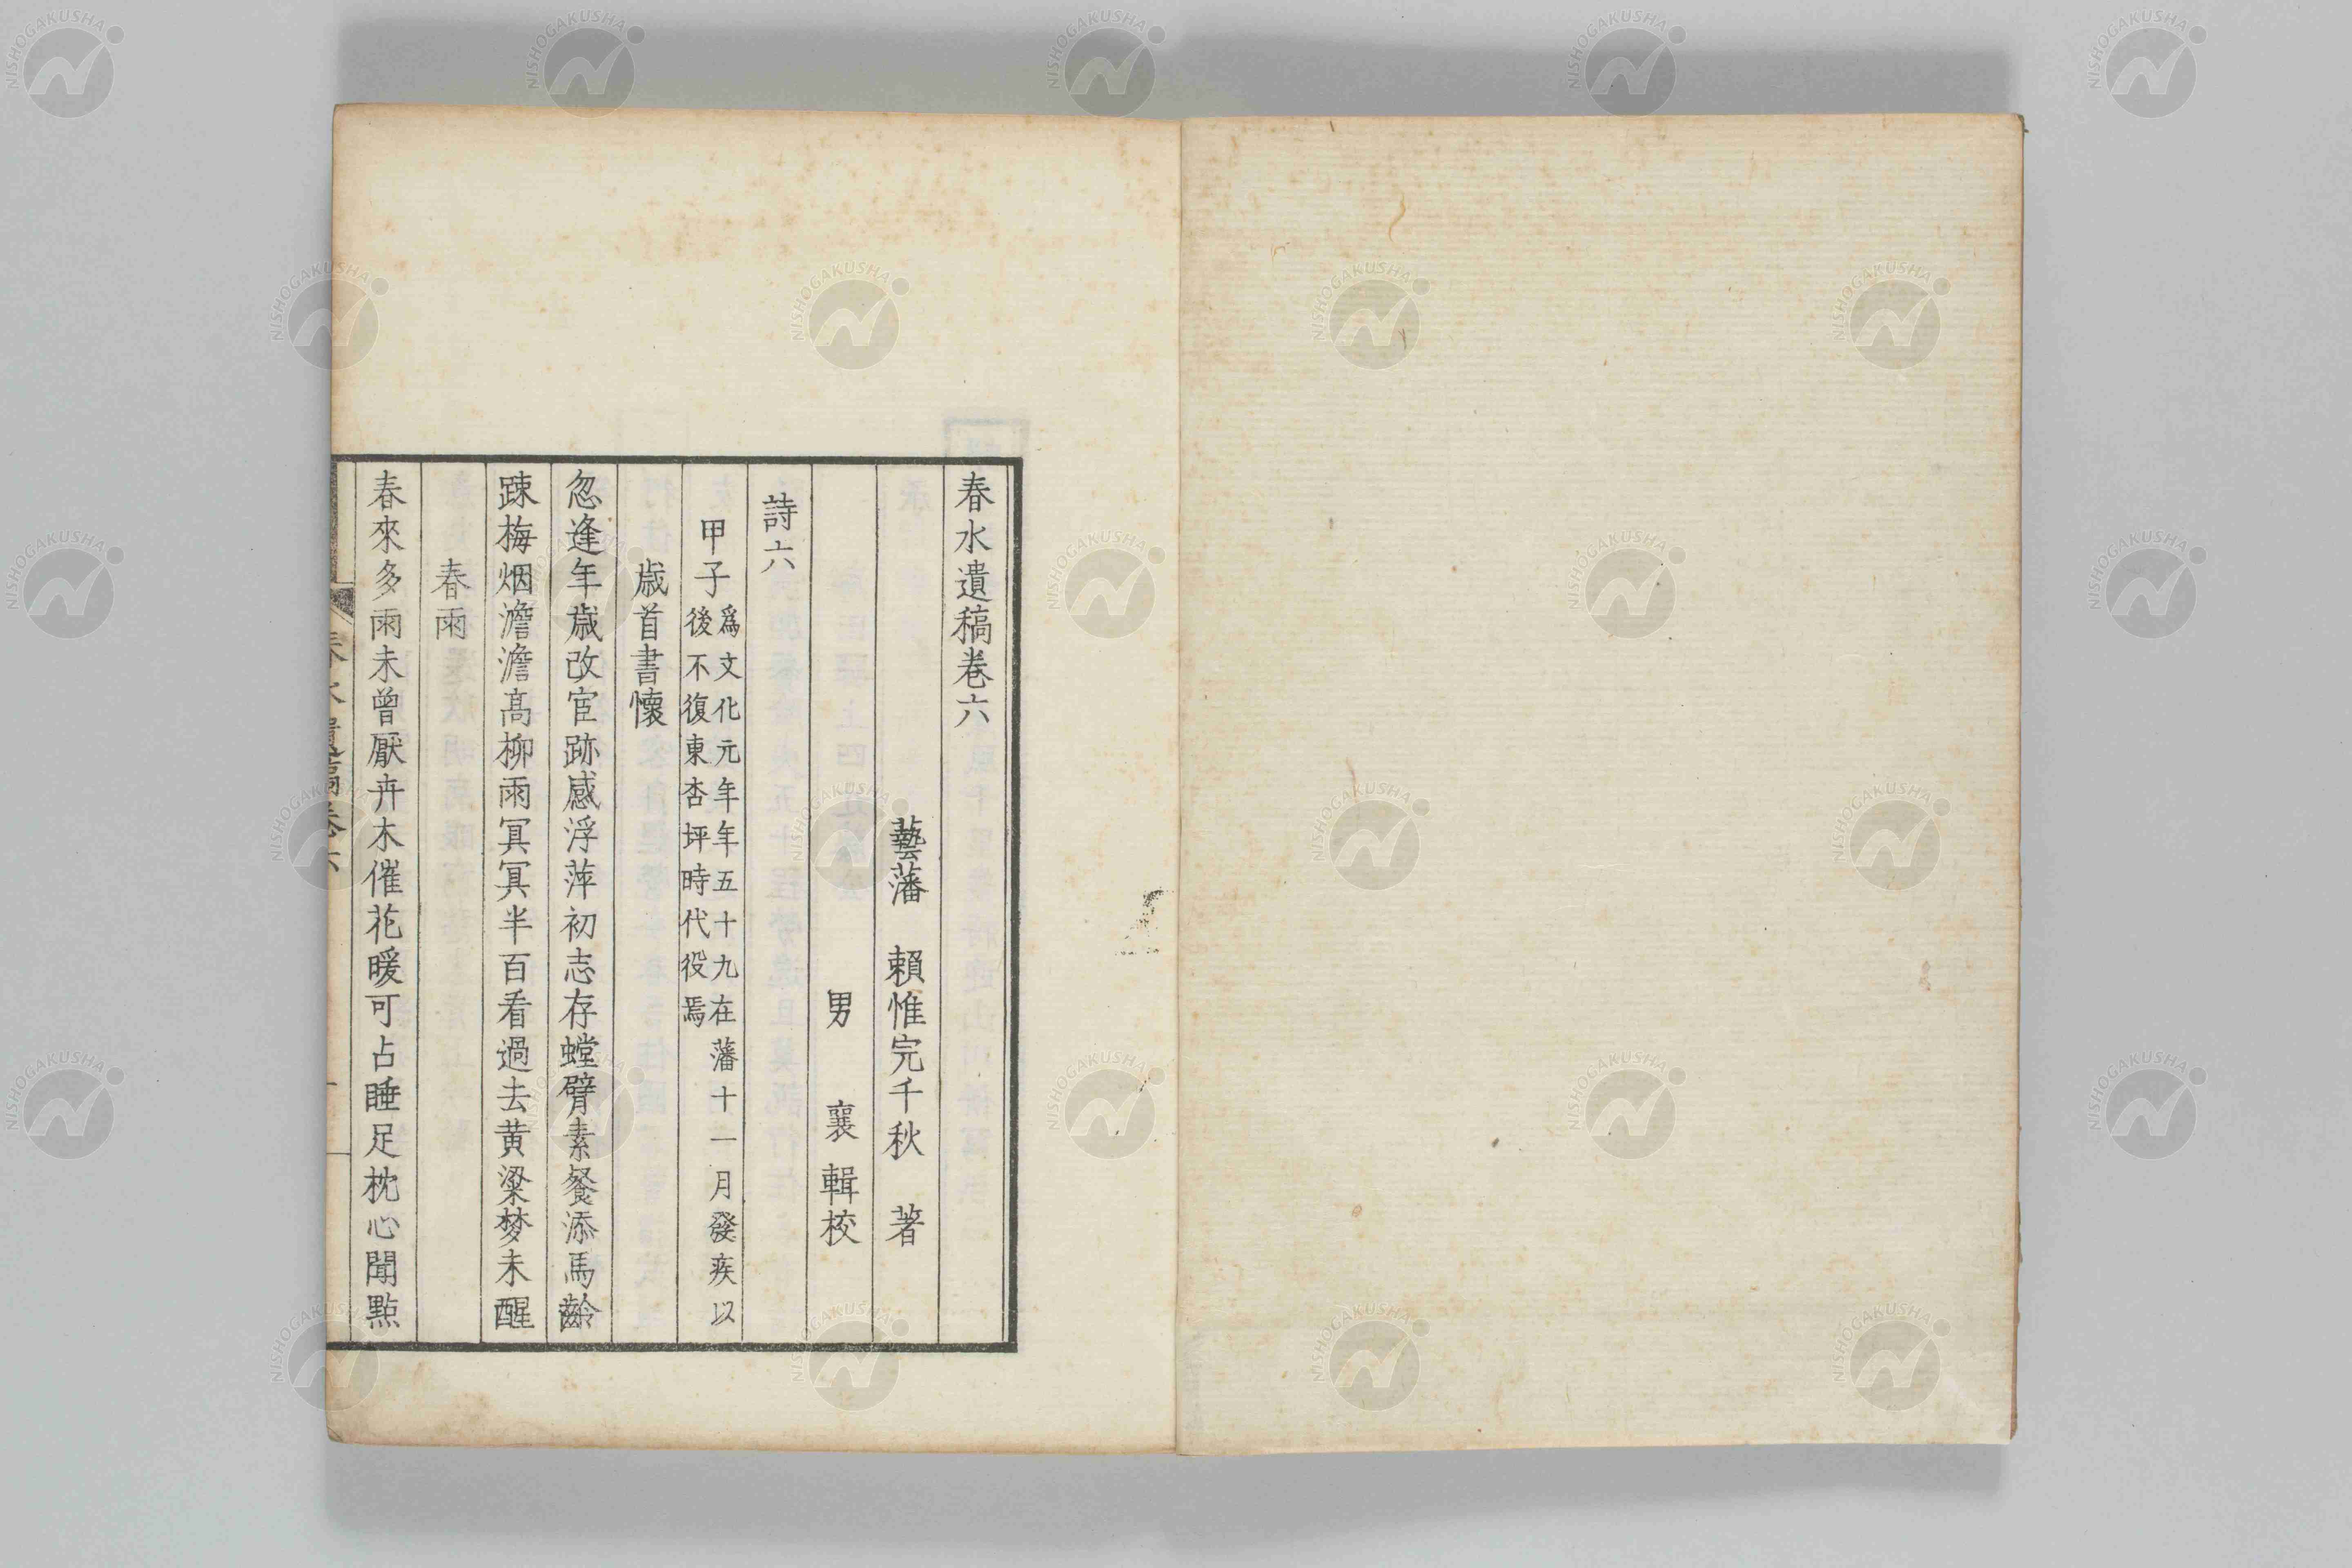 春水遺稿卷六
藝藩　賴惟完千秋　著
男　襄　輯校
詩六
甲子
爲文化元年年五十九在藩十一月發疾以
後不復東杏坪時代役焉
歲首書懷
忽逢年歲改宦跡感浮萍初志存螳臂素餐添馬齡
踈梅烟澹澹高柳雨冥冥半百看過去黄粱梦未醒
春雨
春來多雨未曾厭卉木催花暖可占睡足枕心聞點
NISHOGAKUSHA